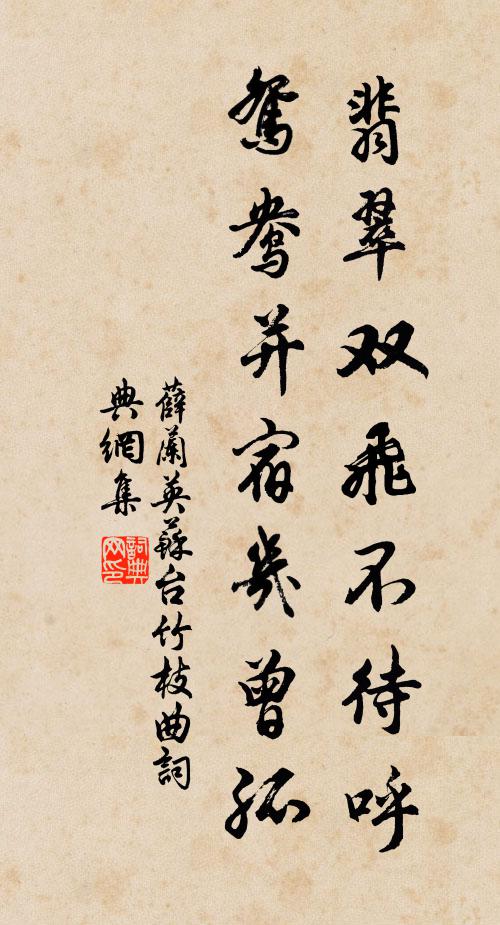 翡翠双飛不待呼
鴛鴦并宿幾曾孤
薛蘭英蘇台竹枝曲詞
典網集
詞典
网印